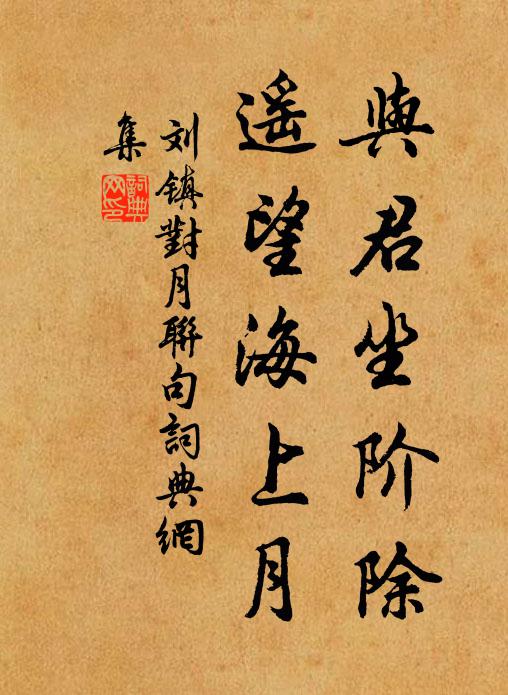 與君坐阶除
遥望海上月
刘镇對月聯句詞典網
集
詞典
网印